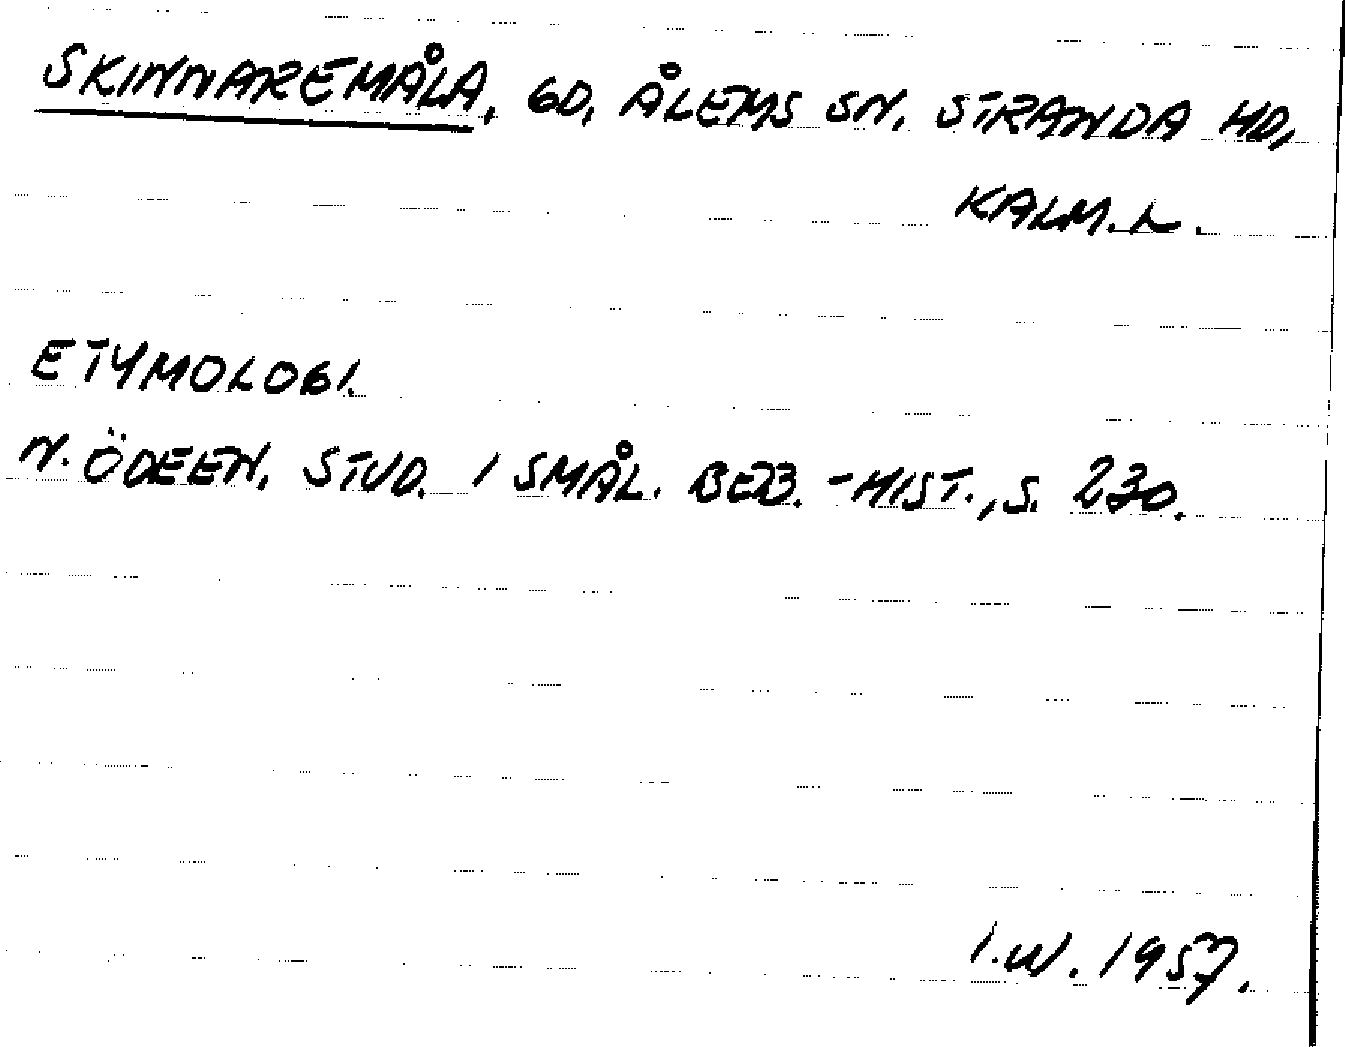 SKINNAREMÅLA, GD, ÅLEMS SN. STRANDA HD,
KALM. L.
ETYMOLOGI.
N. ÖDEEN, STUD. I SMÅL. BEB. -HIST., S. 230.
I.W. 1957.